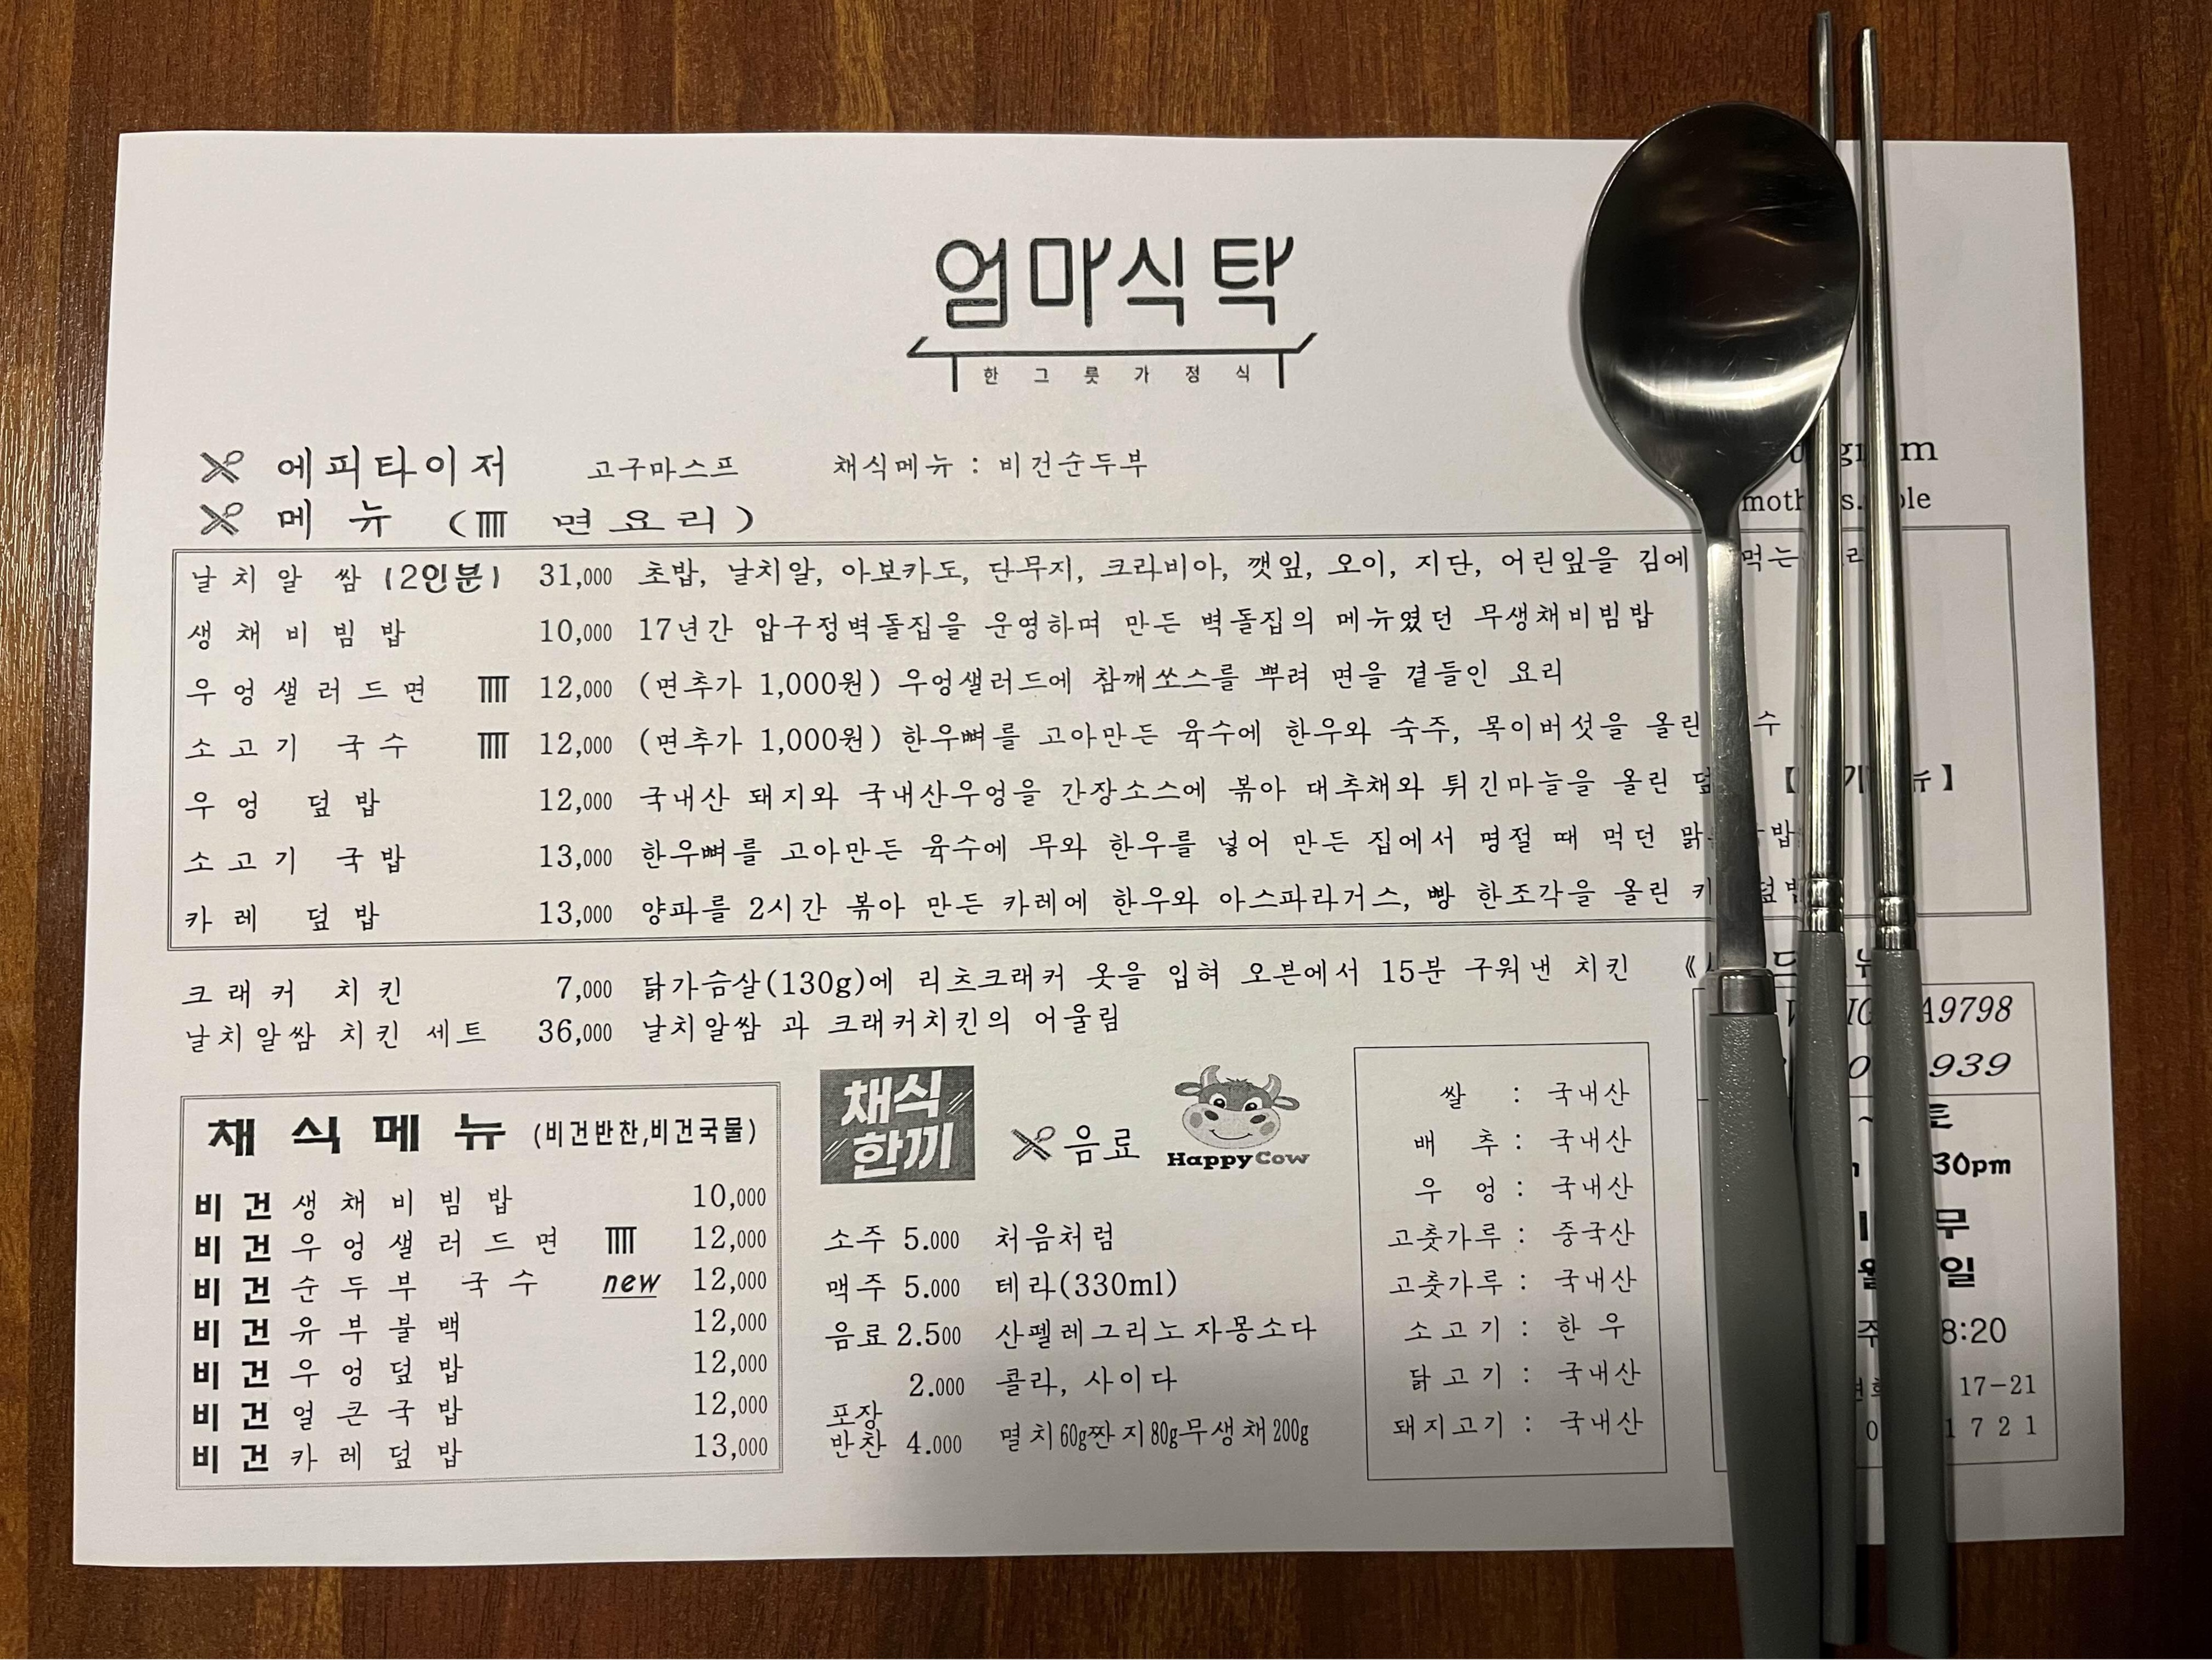 엄마식탁
한그릇가정식
에피타이저 고구마스프 채식메뉴 : 비건순두부
메 뉴 (면요리)
날치알 쌈 (2인분) 31,000 초밥, 날치알, 아보카도, 단무지, 크라비아, 깻잎, 오이, 지단, 어린잎을 김에 먹는
생채비빔밥 10,000 17년간 압구정벽돌집을 운영하며 만든 벽돌집의 메뉴였던 무생채비빔밥
우엉샐러드면 12,000 (면추가 1,000원) 우엉샐러드에 참깨쏘스를 뿌려 면을 곁들인 요리
소고기 국수 12,000 (면추가 1,000원) 한우뼈를 고아만든 육수에 한우와 숙주, 목이버섯을 올린
우엉 덮밥 12,000 국내산 돼지와 국내산우엉을 간장소스에 볶아 대추채와 튀긴마늘을 올린
소고기 국밥 13,000 한우뼈를 고아만든 육수에 무와 한우를 넣어 만든 집에서 명절 때 먹던
카레 덮밥 13,000 양파를 2시간 볶아 만든 카레에 한우와 아스파라거스, 빵 한조각을 올린
크래커 치킨 7,000 닭가슴살(130g)에 리츠크래커 옷을 입혀 오븐에서 15분 구워낸 치킨
날치알쌈 치킨 세트 36,000 날치알쌈 과 크래커치킨의 어울림
채식메뉴 (비건반찬,비건국물)
비건 생채비빔밥 10,000
비건 우엉샐러드면 12,000
비건 순두부 국수 new 12,000
비건 유부불백 12,000
비건 우엉덮밥 12,000
비건 얼큰국밥 12,000
비건 카레덮밥 13,000
채식
한끼
음료
HappyCow
소주 5.000 처음처럼
맥주 5.000 테라(330ml)
음료 2.500 산펠레그리노자몽소다
2.000 콜라, 사이다
포장
반찬 4.000 멸치60g짠지80g무생채200g
쌀 : 국내산
배 추 : 국내산
우 엉 : 국내산
고춧가루 : 중국산
고춧가루 : 국내산
소고기 : 한우
닭고기 : 국내산
돼지고기 : 국내산
A9798
939
토
30pm
무
일
8:20
17-21
1721